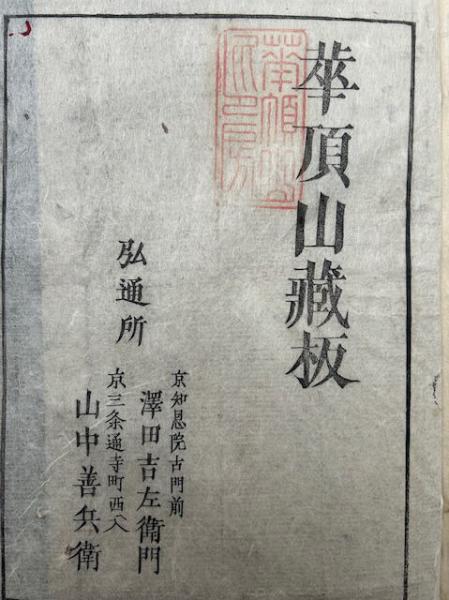 華頂山藏板
弘通所
京知恩院古門前
澤田吉左衞門
京三条通寺町西入
山中善兵衛